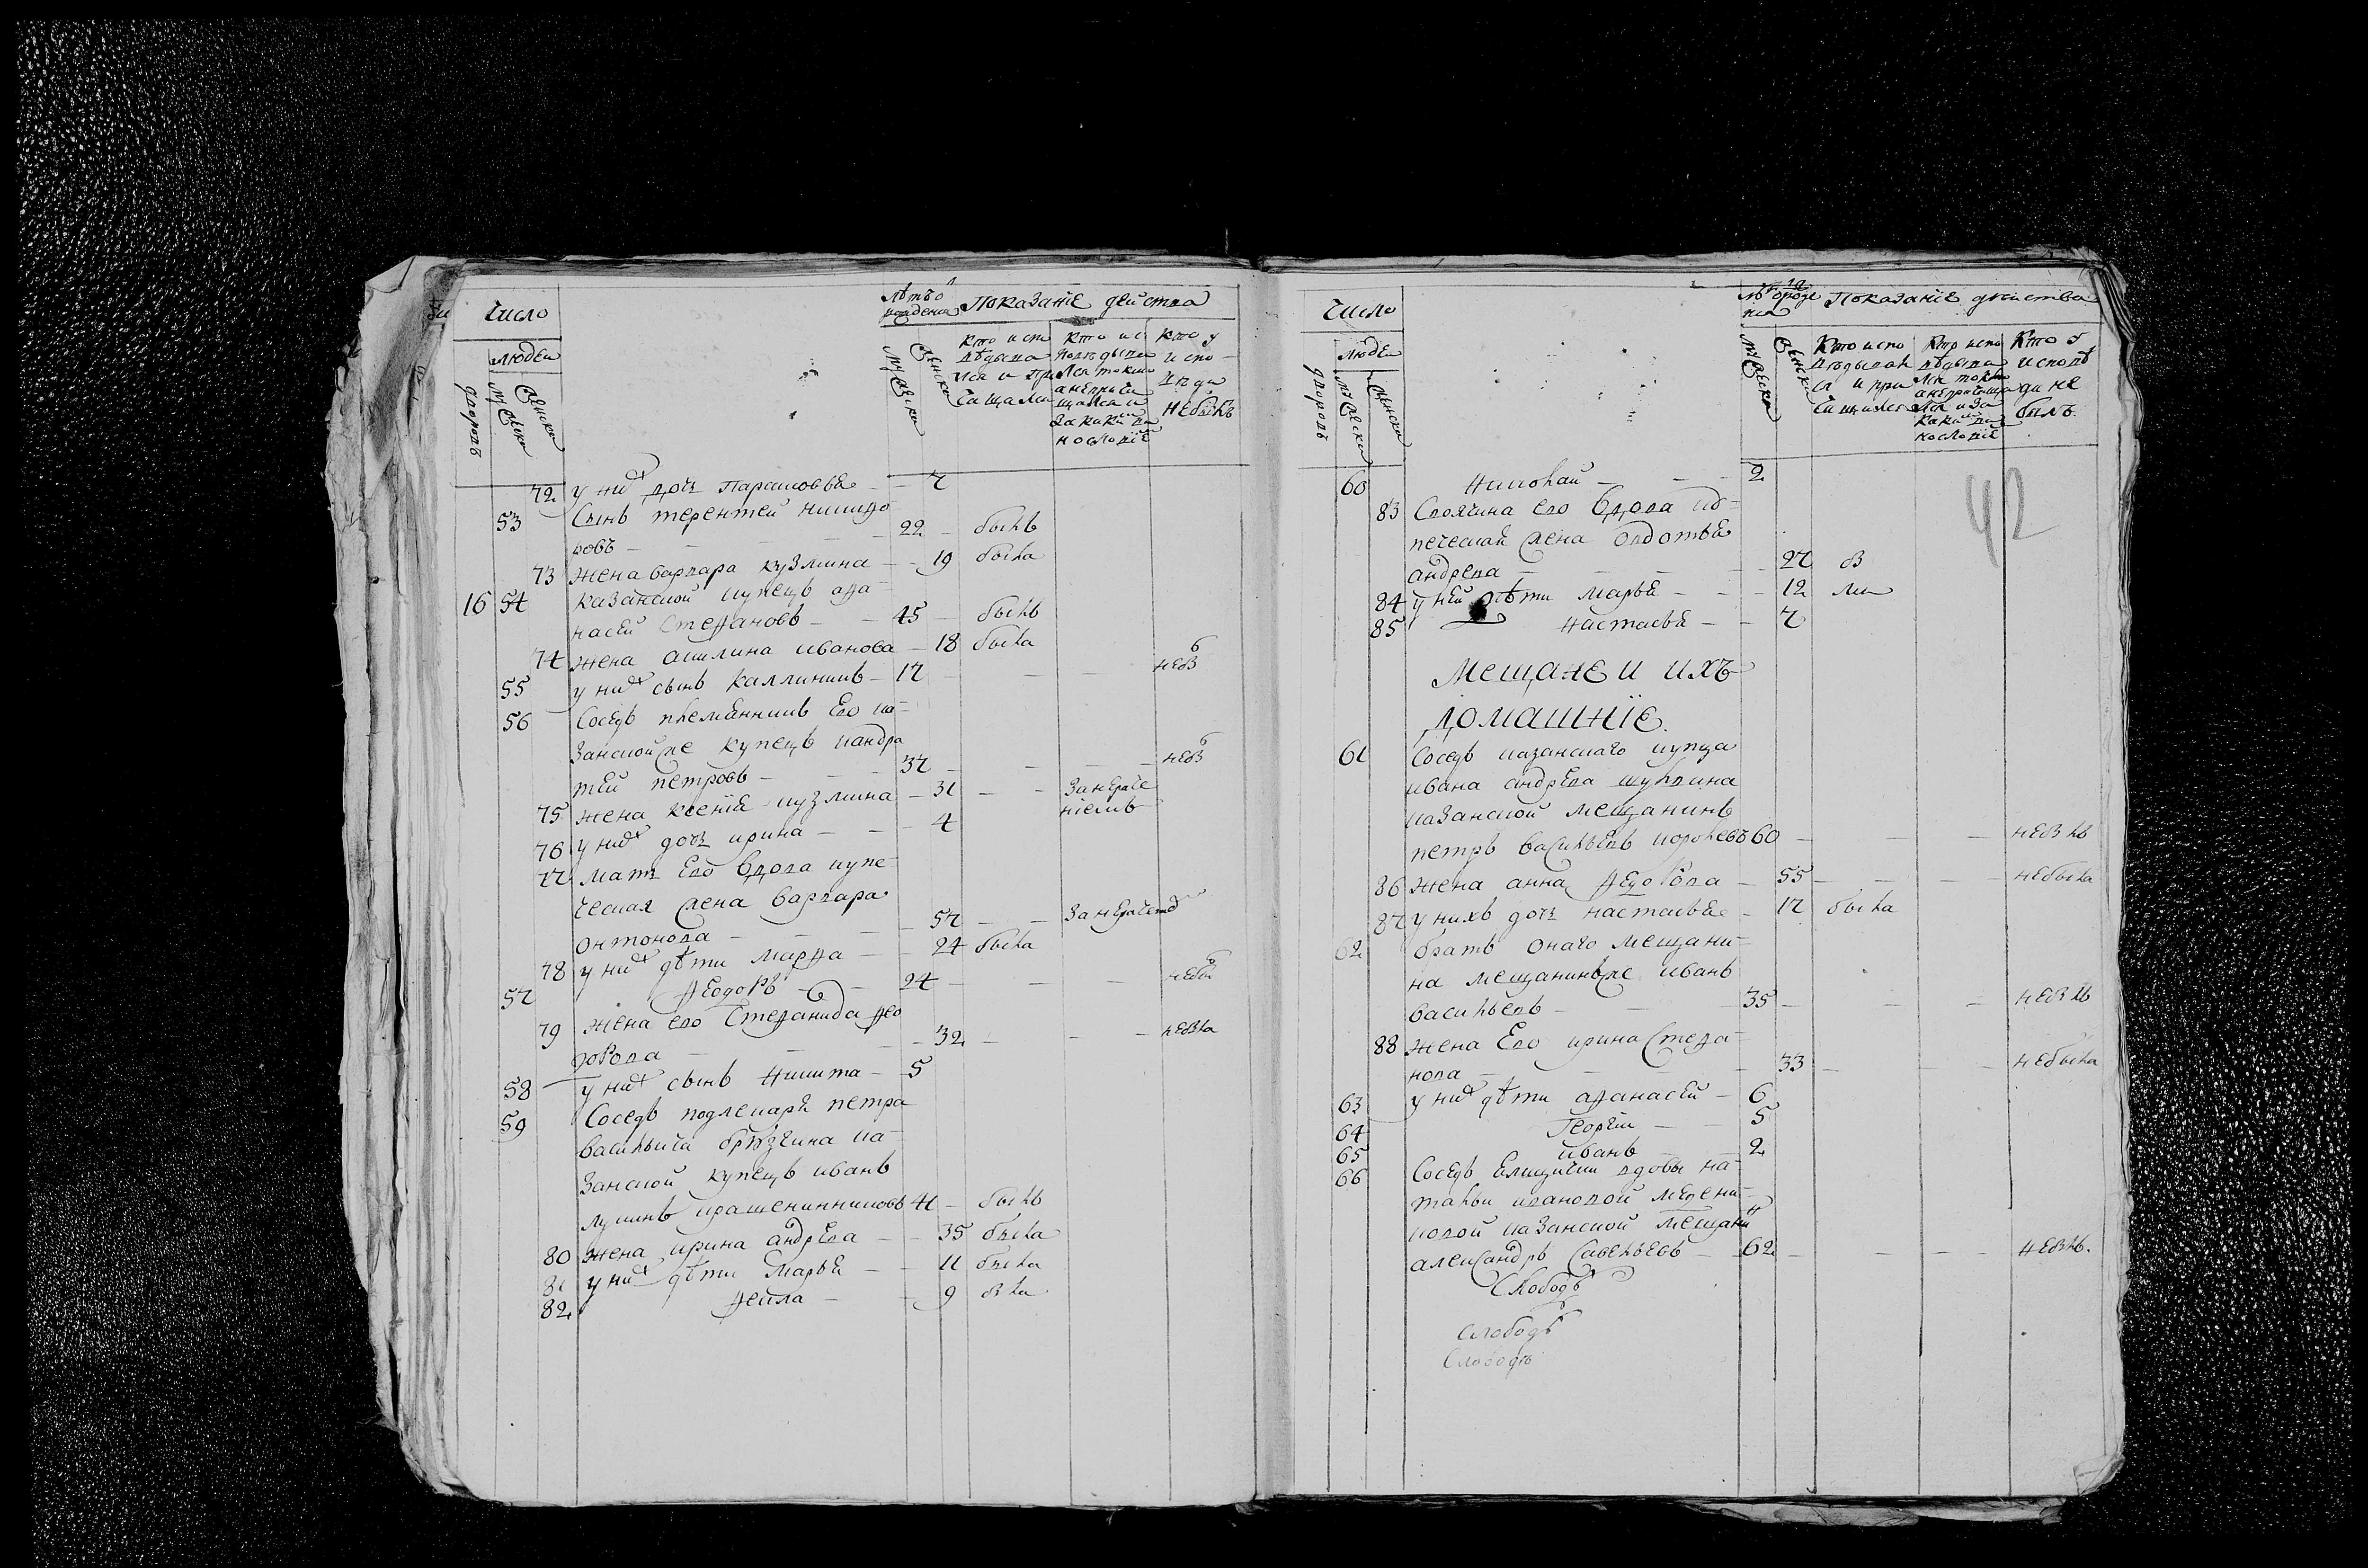 Число
Лѣтъ о
рождения
Показание действа
людей
дворовъ
мужеска
женска
мужеска
женска
Кто испо
вѣдыва
лся и при
чащался
Кто ис
поведыва
лся токмо
а не прича
щался и
за каки
но словіе
Кто у
испо-
веди
не былъ
72 у них дочь Парасковья - - 7
53 Сынъ терентей никиѳо
ровъ - 22 - былъ
73 жена варвара кузмина - - 19 была
16 54 казанской купецъ аѳа-
насей Стеѳановъ - 45 - былъ
74 жена акилина иванова - 18 была
55 у них сынъ каллиникъ - 17 - - - небы
56 Соседъ племянникъ его ка-
занской же купецъ кандра
тей петровъ - 37 - - - небы
75 жена ксения кузмина - 31 - - за нераче
ниемъ
76 у них дочь ирина - - 4
77 мать его вдова купе
ческая жена варвара
онтонова - 57 - - за нерачет
78 у них дѣти марѳа - - 24 была
57 ѳеодоръ - 24 - - - небы
79 жена его Стеѳанида ѳео
дорова - 32 - - - небыла
58 у них сынъ никита - 5
59 Соседъ подлекаря петра
васильича брызгина ка-
занской купецъ иванъ
лукинъ крашенинниковъ 41 - былъ
80 жена ирина андрева - - 35 была
81 у них дѣти марья - - 11 была
82 ѳекла - - 9 была
Число
Показание действа
людей
дворовъ
мужеска
женска
мужеска
женска
Кто испо
ведывалс
я и при
чащался
Кто испо
вѣдыва
лся токмо
а не прича
лся и за
каки
но словие
Кто у
исповѣ
ди не
былъ
42
60 николай - - - 2
83 Своячина его вдова ку-
печеская жена овдотья
андрева - 27 была
84 у ней дѣти марья - - 12
85 настасья - - 7
Мещане и ихъ
домашние.
61 Соседъ казанскаго купца
ивана андрева шулдина
казанской мещанинъ
петръ васильевъ королевъ 60 - - - небылъ
86 жена анна ѳедорова - 55 - - - небыла
87 у нихъ дочь настасья - 17 была
62 братъ онаго мещани-
на мещанинъ же иванъ
васильевъ - 35 - - - небылъ
88 жена его ирина Стеѳа-
нова - 33 - - - небыла
63 у них дѣти аѳанасей - 6
64 георгии - - 5
65 иванъ - 2
66 Соседъ вдовы на-
тальи ивановой
ковой казанской мещани
александръ Савельевъ - 62 - - - небылъ.
Слободъ
слободъ
Слободъ